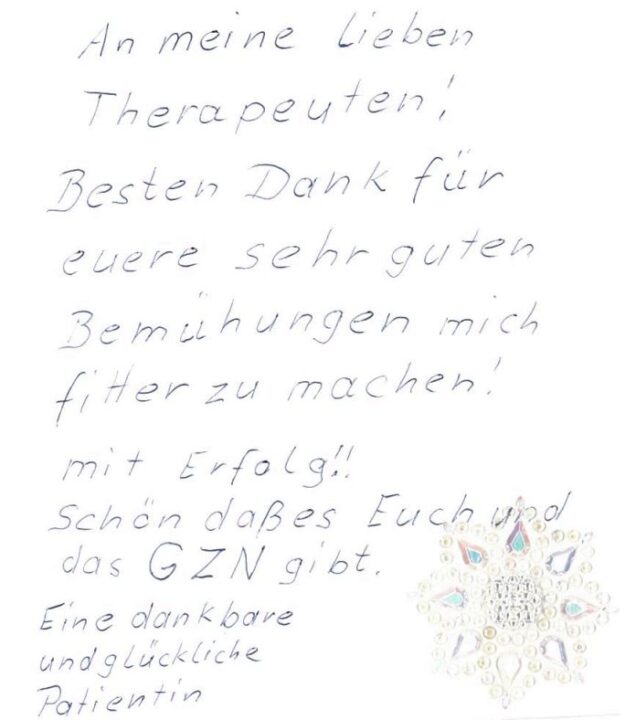 An meine lieben
Therapeuten!
Besten Dank für
euere sehr guten
Bemühungen mich
fitter zu machen!
mit Erfolg!!
Schön daßes Euch und
das GZN gibt.
Eine dankbare
und glückliche
Patientin